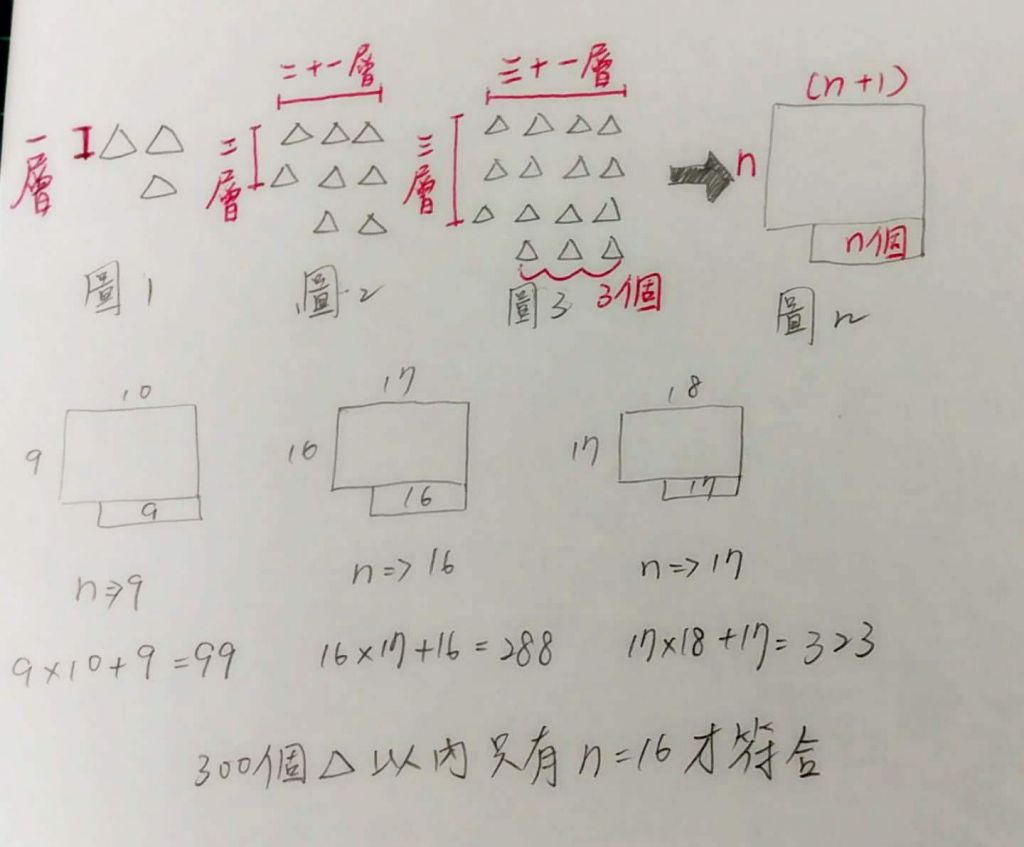 二十一層
三十一層
(n+1)
一層
二層
三層
n
n個
3個
圖1
圖2
圖3
圖n
10
17
18
9
16
17
9
16
17
n⇒9
n=>16
n=>17
9×10+9=99
16×17+16=288
17×18+17=323
300個△以內只有n=16才符合